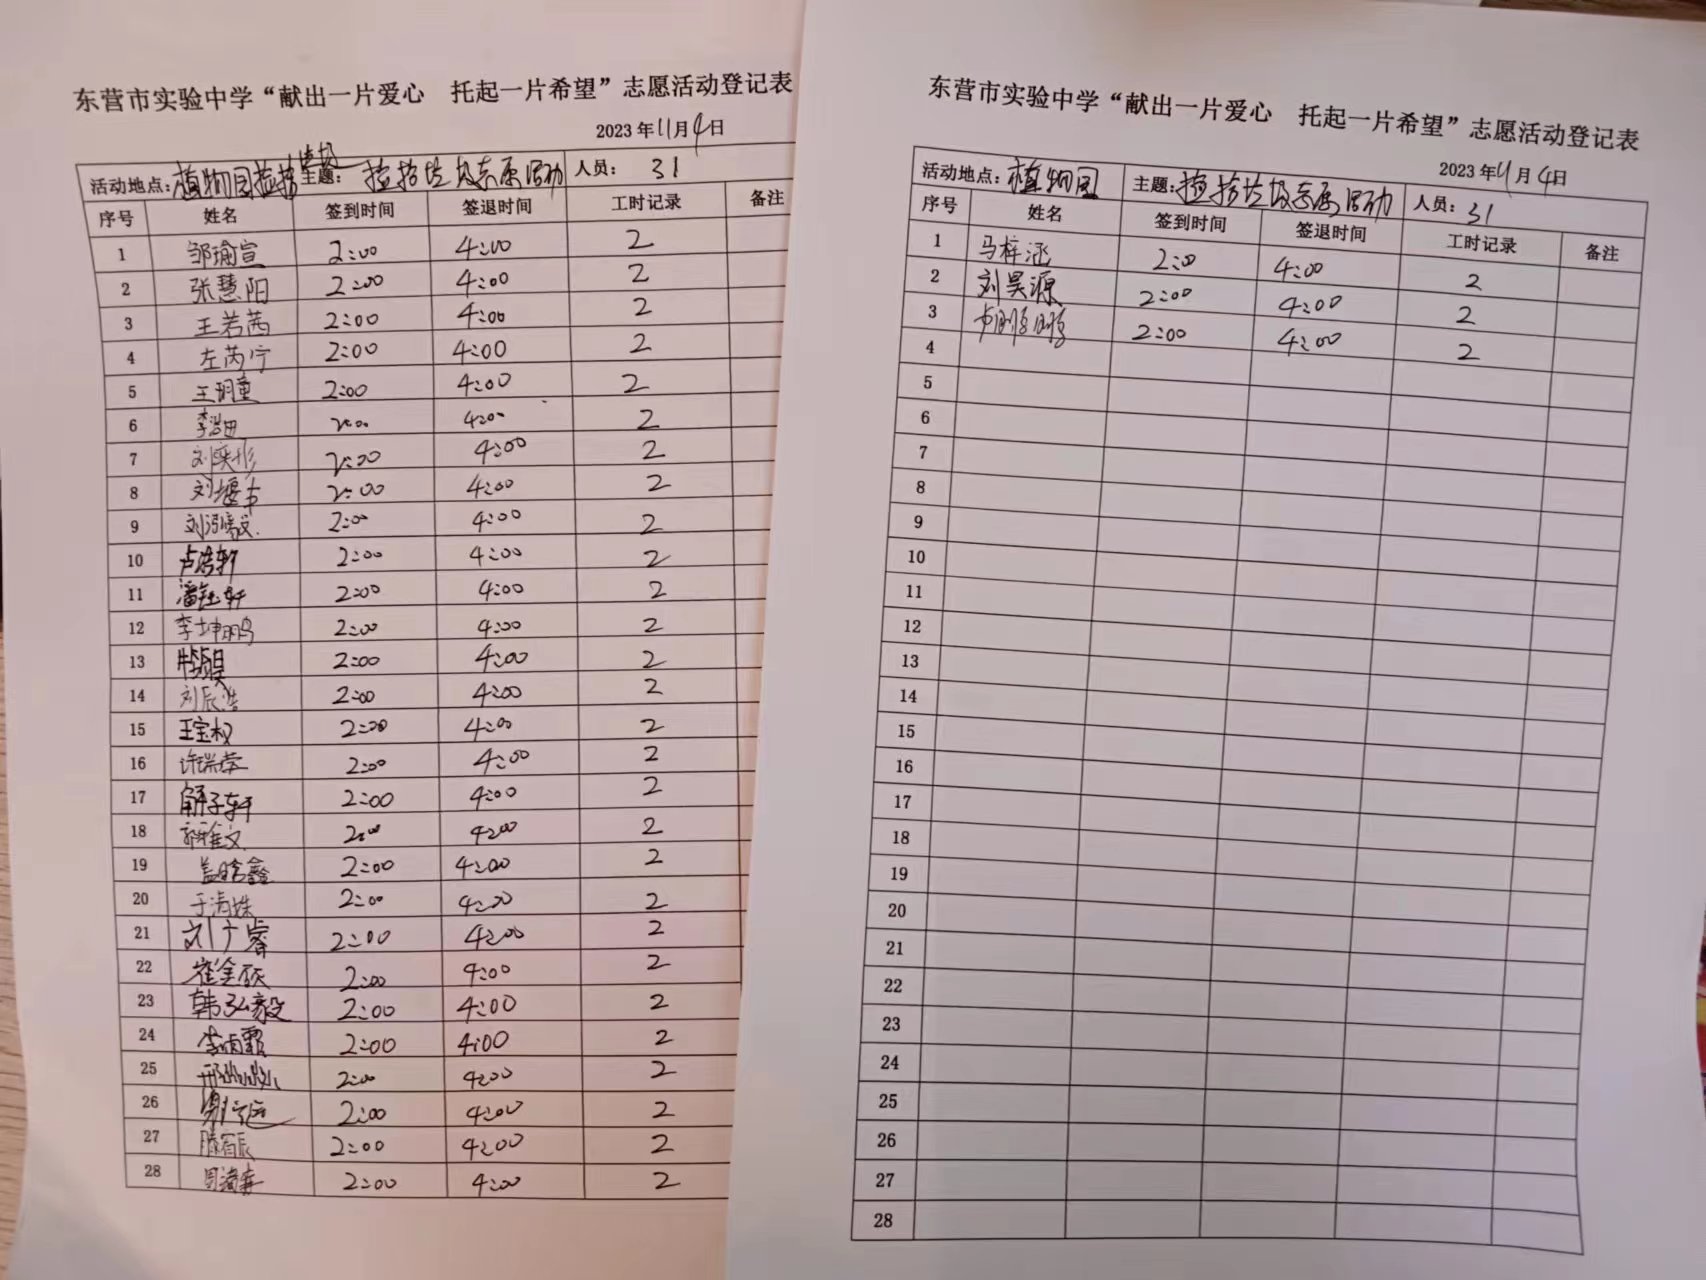 东营市实验中学“献出一片爱心 托起一片希望”志愿活动登记表
2023年11月4日
活动地点：植物园 主题：捡拾垃圾志愿活动 人员：31
序号 姓名 签到时间 签退时间 工时记录 备注
1 邹瑜宣 2:00 4:00 2
2 张慧阳 2:00 4:00 2
3 王若茜 2:00 4:00 2
4 左芮宁 2:00 4:00 2
5 王玥童 2:00 4:00 2
6 2:00 4:00 2
7 刘奕彤 2:00 4:00 2
8 2:00 4:00 2
9 2:00 4:00 2
10 卢浩轩 2:00 4:00 2
11 潘钰轩 2:00 4:00 2
12 李坤鹏 2:00 4:00 2
13 2:00 4:00 2
14 刘辰浩 2:00 4:00 2
15 王宝权 2:00 4:00 2
16 2:00 4:00 2
17 解子轩 2:00 4:00 2
18 郭雅文 2:00 4:00 2
19 盖晗鑫 2:00 4:00 2
20 于清姝 2:00 4:00 2
21 刘广睿 2:00 4:00 2
22 2:00 4:00 2
23 韩弘毅 2:00 4:00 2
24 2:00 4:00 2
25 2:00 4:00 2
26 2:00 4:00 2
27 2:00 4:00 2
28 2:00 4:00 2
东营市实验中学“献出一片爱心 托起一片希望”志愿活动登记表
2023年11月4日
活动地点：植物园 主题：捡拾垃圾志愿活动 人员：31
序号 姓名 签到时间 签退时间 工时记录 备注
1 马梓涵 2:00 4:00 2
2 刘昊源 2:00 4:00 2
3 2:00 4:00 2
4
5
6
7
8
9
10
11
12
13
14
15
16
17
18
19
20
21
22
23
24
25
26
27
28